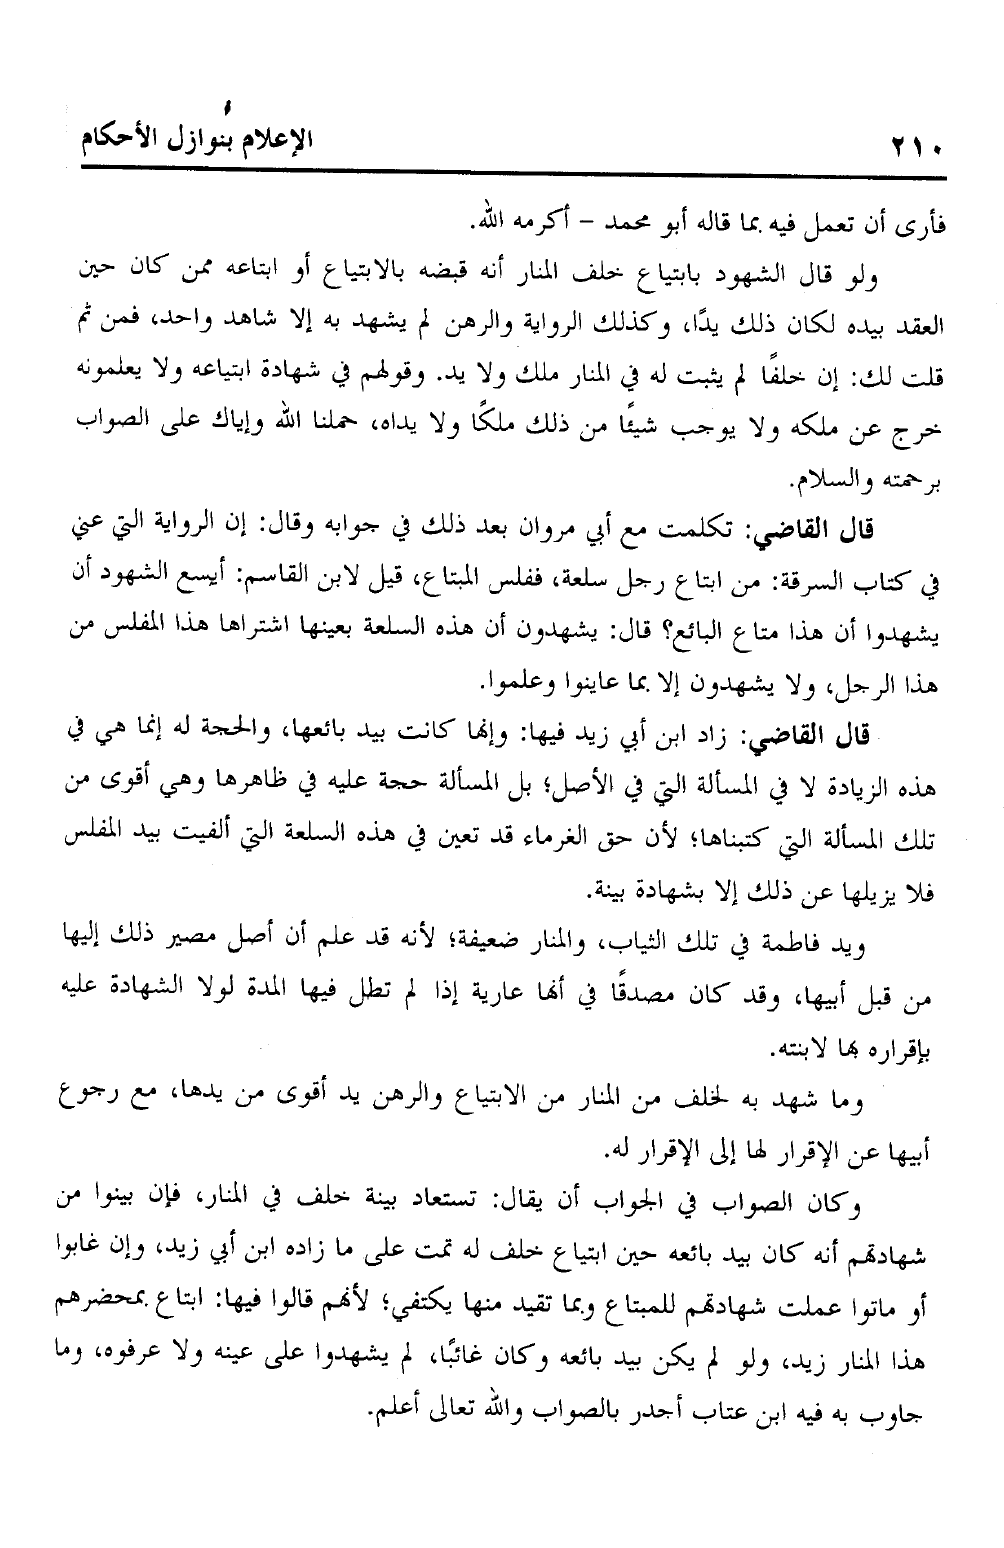 ٢١٠
الإعلام بنوازل الأحكام
فأرى أن تعمل فيه بما قاله أبو محمد – أكرمه الله.
ولو قال الشهود بابتياع خلف المنار أنه قبضه بالابتياع أو ابتاعه ممن كان حين
العقد بيده لكان ذلك يدًا، وكذلك الرواية والرهن لم يشهد به إلا شاهد واحد، فمن ثم
قلت لك: إن خلفًا لم يثبت له في المنار ملك ولا يد. وقولهم في شهادة ابتياعه ولا يعلمونه
خرج عن ملكه ولا يوجب شيئًا من ذلك ملكًا ولا يداه، حملنا الله وإياك على الصواب
برحمته والسلام.
قال القاضي: تكلمت مع أبي مروان بعد ذلك في جوابه وقال: إن الرواية التي عني
في كتاب السرقة: من ابتاع رجل سلعة، ففلس المبتاع، قيل لابن القاسم: أيسع الشهود أن
يشهدوا أن هذا متاع البائع؟ قال: يشهدون أن هذه السلعة بعينها اشتراها هذا المفلس من
هذا الرجل، ولا يشهدون إلا بما عاينوا وعلموا.
قال القاضي: زاد ابن أبي زيد فيها: وإنها كانت بيد بائعها، والحجة له إنما هي في
هذه الزيادة لا في المسألة التي في الأصل؛ بل المسألة حجة عليه في ظاهرها وهي أقوى من
تلك المسألة التي كتبناها؛ لأن حق الغرماء قد تعين في هذه السلعة التي ألفيت بيد المفلس
فلا يزيلها عن ذلك إلا بشهادة بينة.
ويد فاطمة في تلك الثياب، والمنار ضعيفة؛ لأنه قد علم أن أصل مصير ذلك إليها
من قبل أبيها، وقد كان مصدقًا في أنها عارية إذا لم تطل فيها المدة لولا الشهادة عليه
بإقراره بها لابنته.
وما شهد به لخلف من المنار من الابتياع والرهن يد أقوى من يدها، مع رجوع
أبيها عن الإقرار لها إلى الإقرار له.
وكان الصواب في الجواب أن يقال: تستعاد بينة خلف في المنار، فإن بينوا من
شهادتهم أنه كان بيد بائعه حين ابتياع خلف له تمت على ما زاده ابن أبي زيد، وإن غابوا
أو ماتوا عملت شهادتهم للمبتاع وبما تقيد منها يكتفي؛ لأنهم قالوا فيها: ابتاع بمحضرهم
هذا المنار زيد، ولو لم يكن بيد بائعه وكان غائبًا، لم يشهدوا على عينه ولا عرفوه، وما
جاوب به فيه ابن عتاب أجدر بالصواب والله تعالى أعلم.